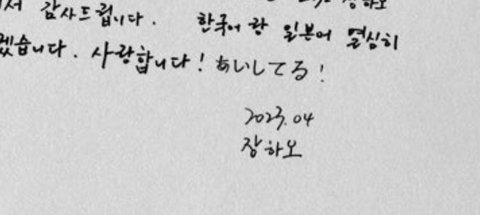 서 감사드립니다. 한국어랑 일본어 열심히
겠습니다. 사랑합니다! あいしてる!
2023.04
장하오